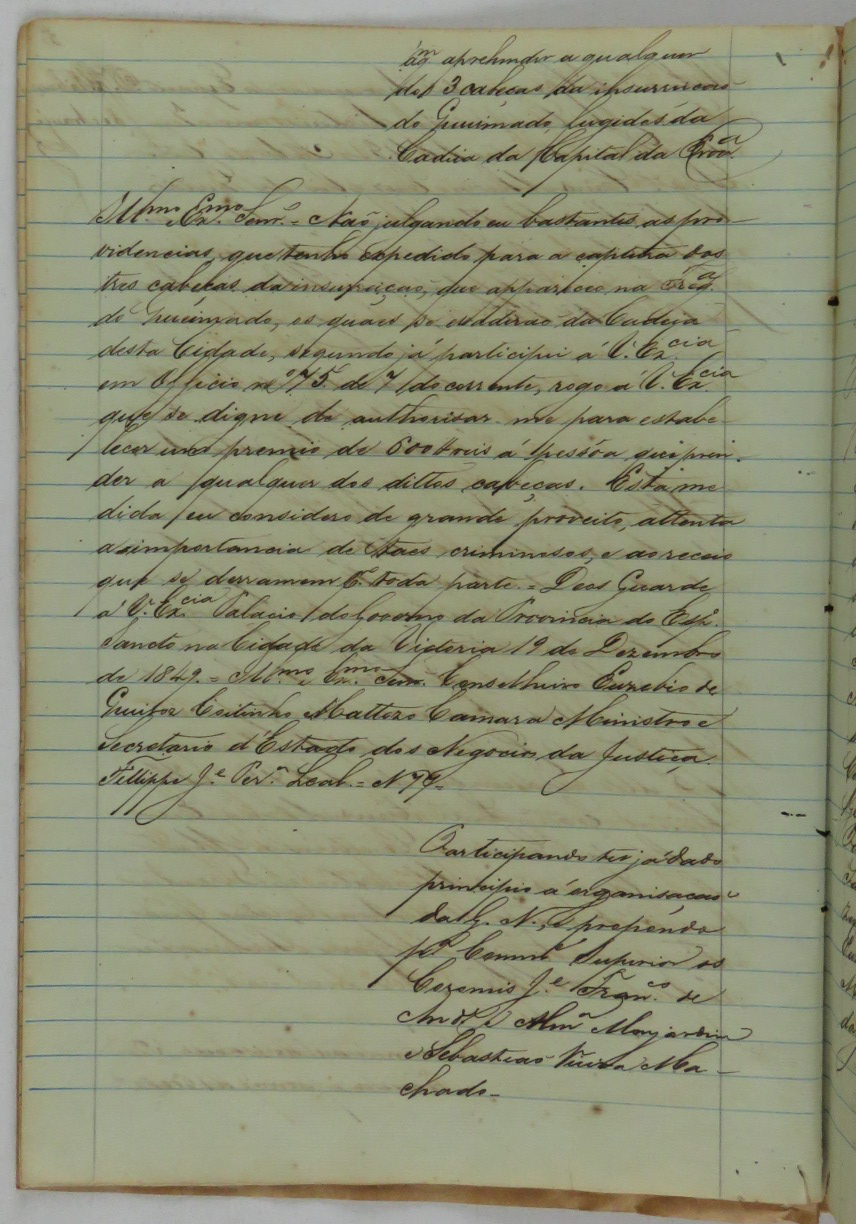 aprehender a qualquer
dos 3 cabeças da insurreicaõ
do Queimado, fugidos da
Cadeia da Capital da Prova
Illmo Exmo Senr. = Naõ julgando eu bastantes as pro-
videncias, que tenho expedido para a captura dos
tres cabeças da insurreiçaõ, que appareceo na Frega
do Queimado, os quaes se evadiraõ da Cadeja
desta Cidade, segundo já participei á V. Excia
em Officio no 75 de 7 do corrente, rogo á V. Excia
que se digne de authorisar-me para estabe-
lecer um premio de 600$ reis á pessôa, que pren-
der a qualquer dos dittos cabeças. Esta me
dida eu considero de grande proveito, attenta
a importancia de taes criminosos, e ao receio
que se derramem toda parte. = Deos Guarde
a V. Excia Palacio do Governo da Provincia do Espo
Sancto na Cidade da Victoria 19 de Dezembro
de 1849. = Illmo e Exmo Senr. Conselheiro Euzebio de
Queiroz Coitinho Mattozo Camara Ministro e
Secretario d'Estado dos Negocios da Justiça.
Fellippe Je Pera Leal. = N 79 -
Participando ter já dado
principio á organisaçaõ
da G. N., e propondo
pa Comme Superior os
Coroneis Je Franco de
Andre e Alma Monjardim
e Sebastiaõ Vieira Ma-
chado -